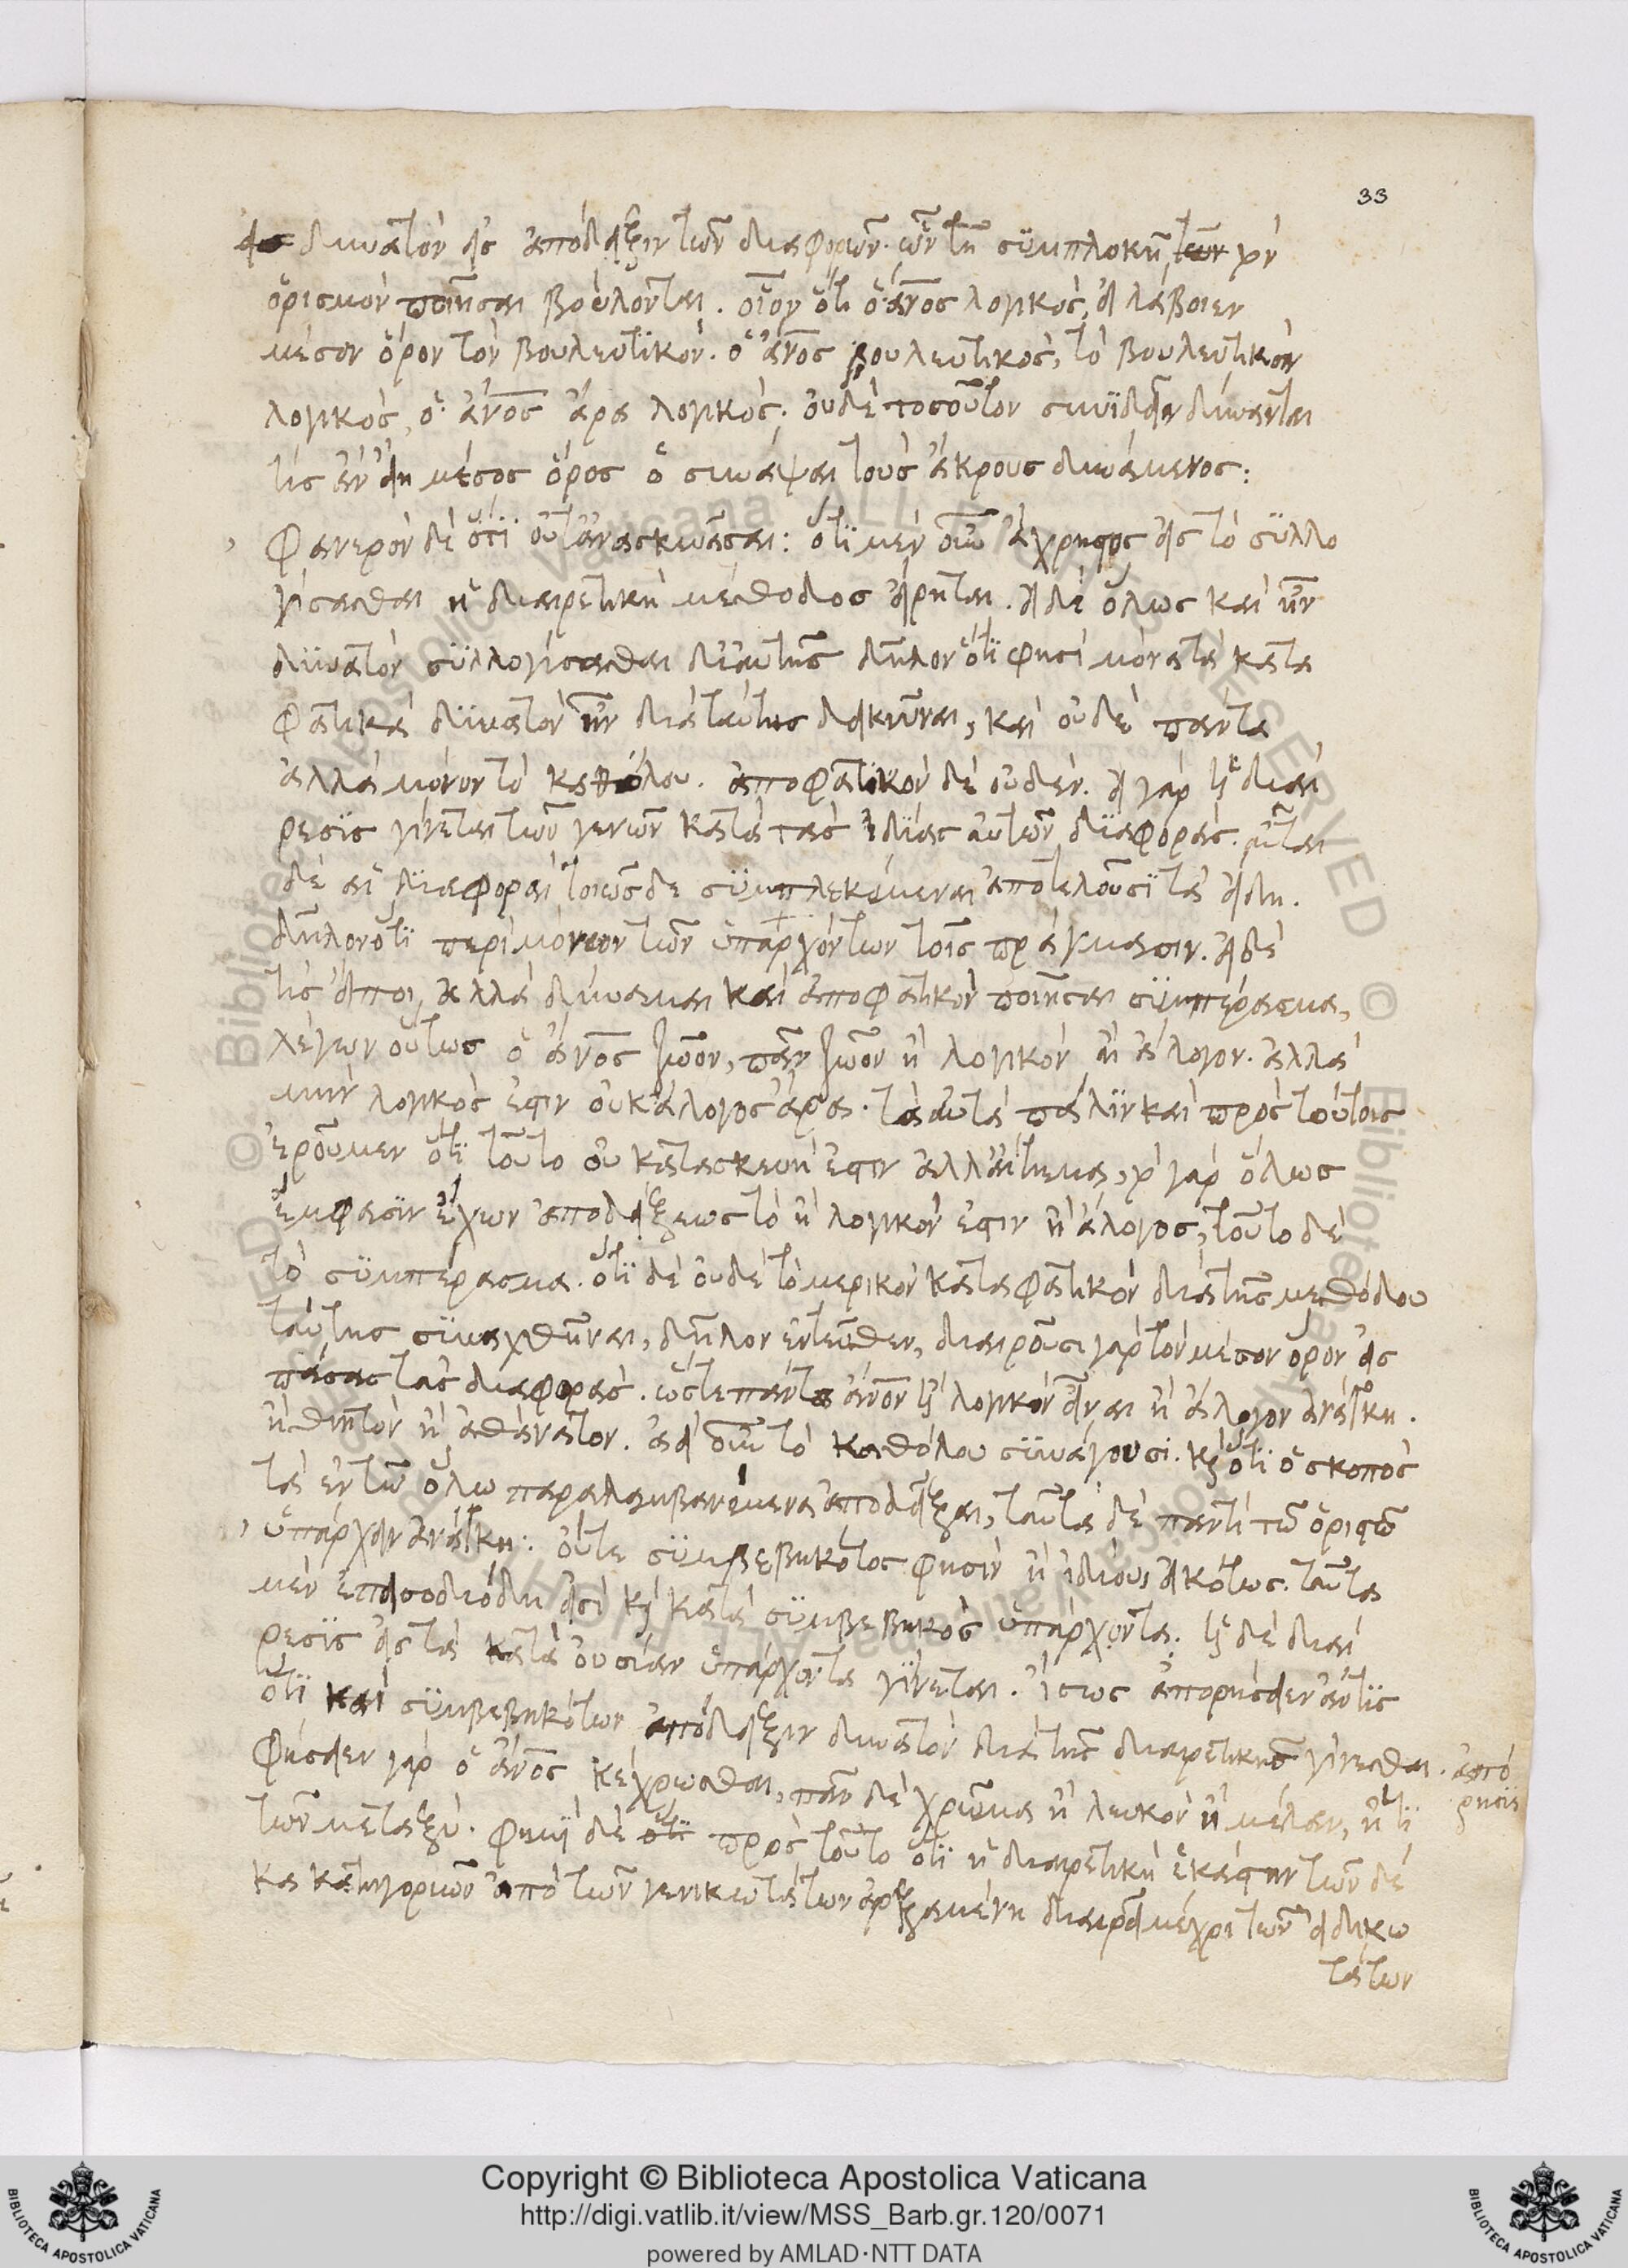 33
δυνατὸν εἰς ἀπόδειξιν τῶν διαφορῶν. ὧν τῆ συμπλοκῆ τὸν
ὁρισμὸν ποιῆσαι βούλονται. οἷον ὅτι ὁ ἄνος λογικός, εἰ λάβοιεν
μέσον ὅρον τὸν βουλευτικόν. ὁ ἄνος βουλευτικός, τὸ βουλευτικὸν
λογικός, ὁ ἄνος ἄρα λογικός. οὐδὲ τοσοῦτον συνϊδεῖν δύνανται
τίς ἂν εἴη μέσος ὅρος ὁ συνάψαι τοὺς ἄκρους δυνάμενος:
Φανερὸν δὲ ὅτι οὔτ' ἀνασκευάσαι: ὅτι μὲν οὖν ἄχρηστος εἰς τὸ συλλο
γίσασθαι ἡ διαιρετικὴ μέθοδος εἴρηται. εἰ δὲ ὅλως καὶ ἦν
δυνατὸν συλλογίσασθαι δι' αὐτῆς δῆλον ὅτι φησὶ μόνα τὰ κατα
φατικὰ δυνατὸν ἦν διὰ ταύτης δεικνύναι, καὶ οὐδὲ πάντα
ἀλλὰ μόνον τὸ καθόλου. ἀποφατικὸν δὲ οὐδέν. εἰ γὰρ ἡ διαί
ρεσις γίνεται τῶν γενῶν κατὰ τὰς ἰδίας αὐτῶν διαφοράς. αὗται
δὲ αἱ διαφοραὶ τοιῶσδε συμπλεκόμεναι ἀποτελοῦσι τὰ εἴδη.
δῆλον ὅτι περὶ μόνων τῶν ὑπαρχόντων τοῖς πράγμασιν. εἰ δέ
τις εἴποι, ἀλλὰ δύναμαι καὶ ἀποφατικὸν ποιῆσαι συμπέρασμα,
λέγων οὕτως ὁ ἄνος ζῶον, πᾶν ζῶον ἢ λογικὸν ἢ ἄλογον. ἀλλὰ
μὴν λογικός ἐστιν οὐκ ἄλογος ἄρα. τὰ αὐτὰ πάλιν καὶ πρὸς τούτοις
ἐροῦμεν ὅτι τοῦτο οὐ κατασκευή ἐστιν ἀλλ' αἴτημα, γὰρ ὅλως
ἔμφασιν ἔχων ἀποδείξεως τὸ ἢ λογικόν ἐστιν ἢ ἄλογος, τοῦτο δὲ
τὸ συμπέρασμα. ὅτι δὲ οὐδὲ τὸ μερικὸν καταφατικὸν διὰ τῆς μεθόδου
ταύτης συναχθῆναι, δῆλον ἐντεῦθεν, διαιροῦσι γὰρ τὸν μέσον ὅρον εἰς
πάσας τὰς διαφοράς. ὥστε πάντα ἄνον ἢ λογικὸν εἶναι ἢ ἄλογον ἀνάγκη.
ἢ θνητὸν ἢ ἀθάνατον. ἀεὶ οὖν τὸ καθόλου συνάγουσι. κ ὅτι ὁ σκοπὸς
τὰ ἐν τῶ ὅλω παραλαμβανόμενα ἀποδεῖξαι, ταῦτα δὲ παντὶ τῶ ὁριστῶ
ὑπάρχειν ἀνάγκη: οὔτε συμβεβηκότος φησὶν ἢ ἰδίου, εἰκότως. ταῦτα
μὲν ἐπεισοδιώδη εἰσὶ κ κατὰ συμβεβηκὸς ὑπάρχοντα. ἡ δὲ διαί
ρεσις εἰς τὰ κατὰ οὐσίαν ὑπάρχοντα γίνεται. ἴσως ἀπορήσειεν ἄν τις
ὅτι καὶ συμβεβηκότων ἀπόδειξιν δυνατὸν διὰ τῆς διαιρετικῆς γίνεσθαι.
ἀπό
ρησις
φήσειεν γὰρ ὁ ἄνος κέχρωσθαι, πᾶν δὲ χρῶμα ἢ λευκὸν ἢ μέλαν, ἤ τι
τῶν μεταξύ. φημὶ δὲ πρὸς τοῦτο ὅτι ἡ διαιρετικὴ ἑκάστην τῶν δέ
κα κατηγοριῶν ἀπὸ τῶν γενικωτάτων ἀρξαμένη διαιρεῖ μέχρι τῶν εἰδικω
τάτων
Copyright © Biblioteca Apostolica Vaticana
http://digi.vatlib.it/view/MSS_Barb.gr.120/0071
powered by AMLAD·NTT DATA